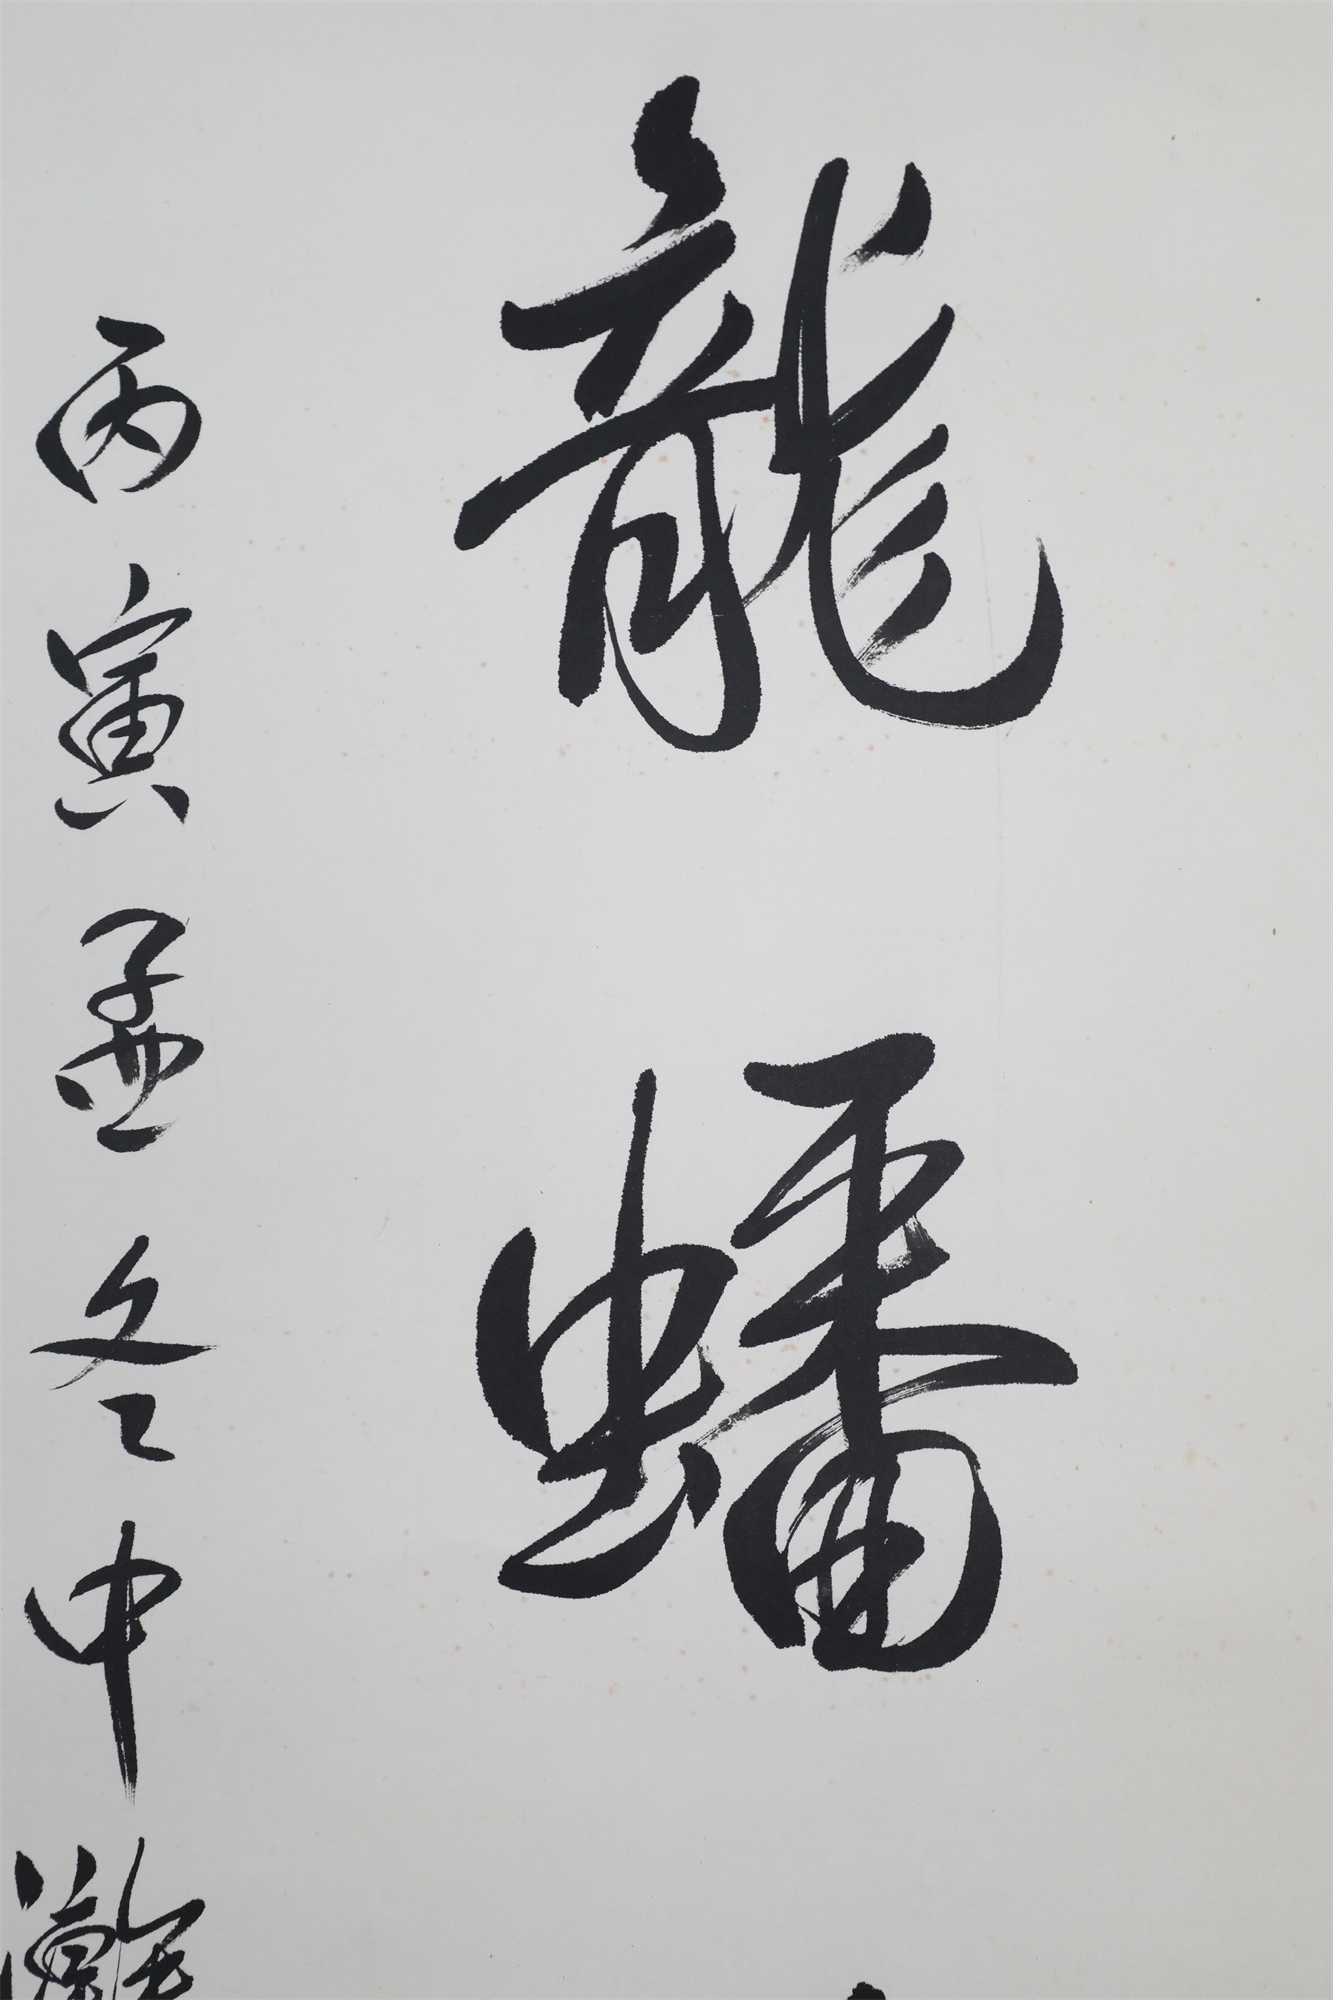 龍蟠
丙寅孟冬中